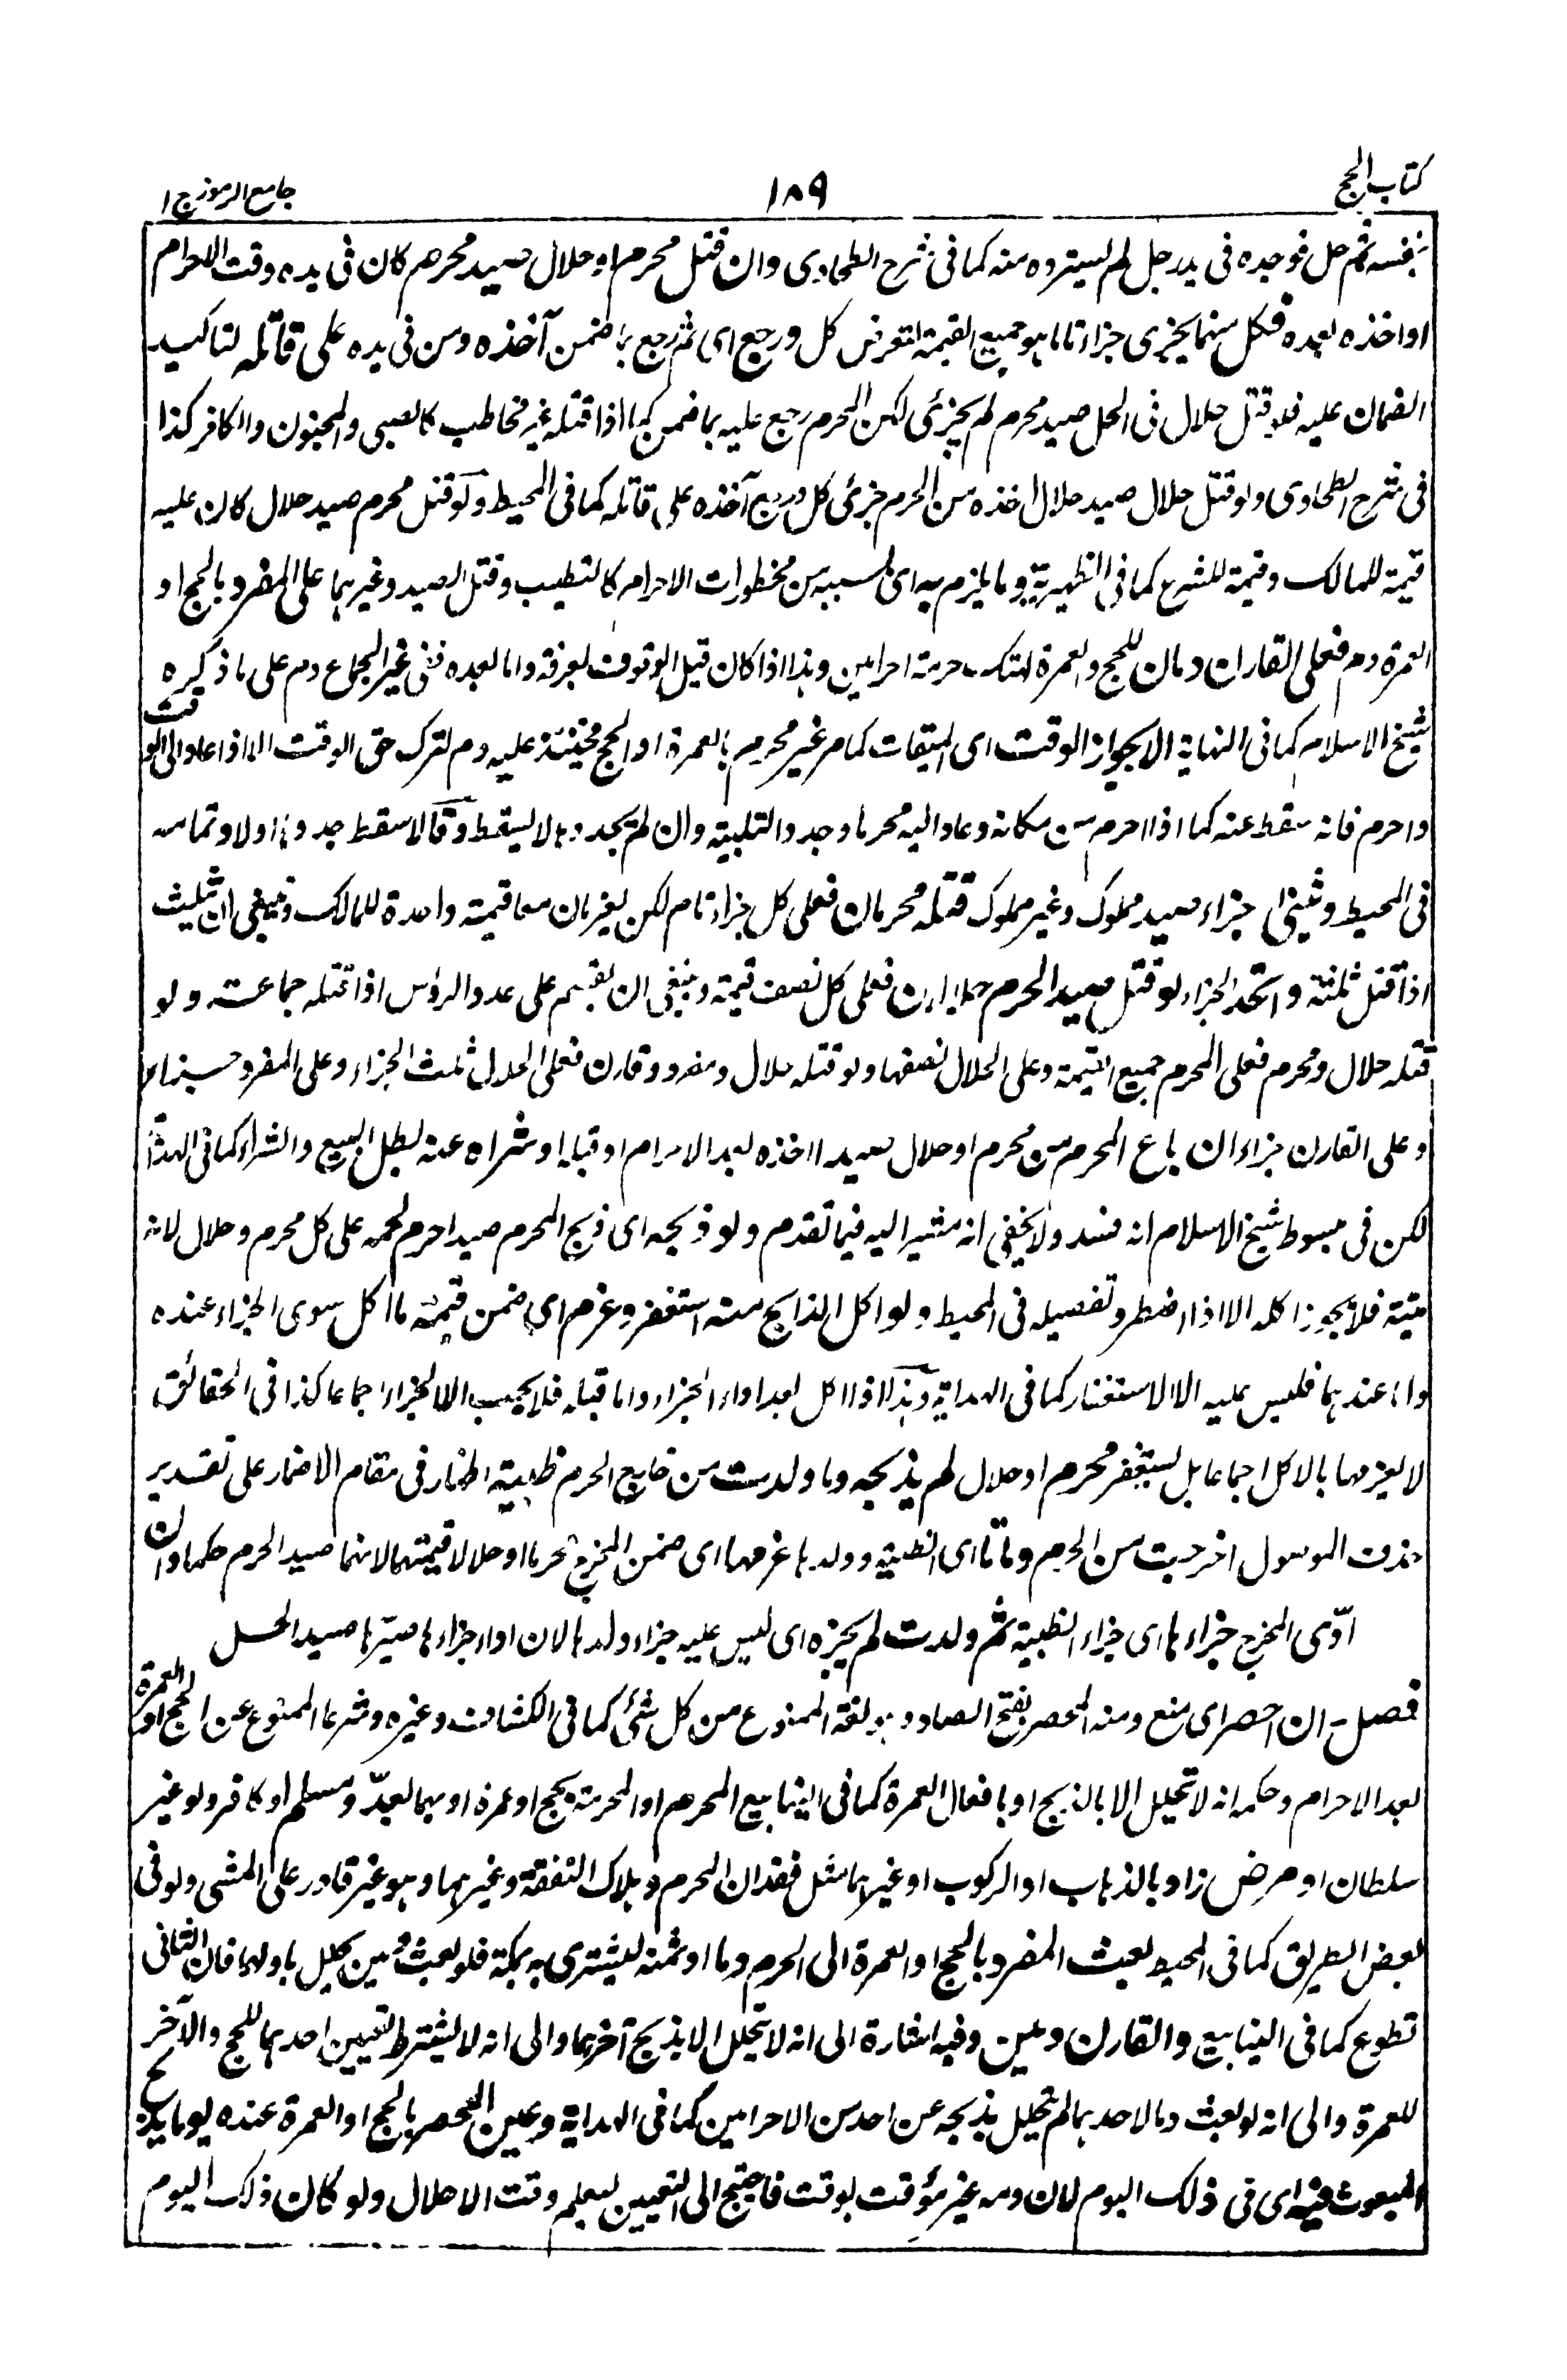 كتاب الحج
١٨٩
جامع الرموز ج ١
بنفسه ثم حل فوجده فى يد رجل لم يسترده منه كما فى شرح الطحاوى وان قتل محرم او حلال صيد محرم كان فى يده وقت الاحرام
او اخذه بعده فكل منهما يجزى جزاء تاما هو جميع القيمة لتعرض كل ورجع اى ثم رجع بما ضمن آخذه ومن فى يده على قاتله لتاكيد
الضمان عليه فلو قتل حلال فى الحل صيد محرم لم يجزئ لكن المحرم رجع عليه بما ضمن كما اذا قتله غير مخاطب كالصبى والمجنون والكافر كذا
فى شرح الطحاوى ولو قتل حلال صيد حلال اخذه من الحرم جزئ كل ورجع آخذه على قاتله كما فى المحيط ولو قتل محرم صيد حلال كان عليه
قيمة للمالك وقيمة للشرع كما فى الظهيرية وما يلزم به اى بسببه من مخطورات الاحرام كالتطيب وقتل الصيد وغيرهما على المفرد بالحج او
العمرة دم فعلى القارن دمان للحج والعمرة لهتك حرمة احرامين وهذا اذا كان قبل الوقوف بعرفة واما بعده ففى غير الجماع دم على ما ذكره
شيخ الاسلام كما فى النهاية الا بجواز الوقت اى الميقات كما مر غير محرم بالعمرة او الحج فحينئذ عليه دم لترك حق الوقت الا اذا عاد الى الوقت
واحرم فانه سقط عنه كما اذا احرم من مكانه وعاد اليه محرما وجدد التلبية وان لم يجددها لا يسقط وقالا سقط جددها اولا وتمامه
فى المحيط وثنى جزاء صيد مملوك وغير مملوك قتله محرمان فعلى كل جزاء تام لكن يغرمان معا قيمة واحدة للمالك وينبغى ان يثليث
اذا قتل ثلثة واتحد الجزاء لو قتل صيد الحرم حلالان فعلى كل نصف قيمة وينبغى ان يقسم على عدد الرؤس اذا قتله جماعة ولو
قتله حلال ومحرم فعلى المحرم جميع القيمة وعلى الحلال نصفها ولو قتله حلال ومفرد وقارن فعلى الحلال ثلث الجزاء وعلى المفرد جزاء
وعلى القارن جزاءان باع المحرم من محرم او حلال صيدا اخذه بعد الاحرام او قبله او شراه عنه بطل البيع والشراء كما فى الهداية
لكن فى مبسوط شيخ الاسلام انه فسد ولا يخفى انه مشير اليه فيما تقدم ولو ذبحه اى ذبح المحرم صيدا حرم لحمه على كل محرم وحلال لانه
ميتة فلا يجوز اكله الا اذا اضطر وتفصيله فى المحيط ولو اكل الذابح منه استغفر وغرم اى ضمن قيمة ما اكل سوى الجزاء عنده
واما عندهما فليس عليه الا الاستغفار كما فى الهداية وهذا اذا اكل بعد اداء الجزاء واما قبله فلا يجب الا الجزاء اجماعا كذا فى الحقائق
لا يغرمها بالاكل اجماعا بل يستغفر محرم او حلال لم يذبحه وما ولدت من خارج الحرم ظبية اظهار فى مقام الاضمار على تقدير
حذف الموصول اخرجت من الحرم وماتا اى الظبية وولدها غرمها اى ضمن المخرج محرما او حلالا قيمتهما لانهما صيد الحرم حكما وان
ادّى المخرج جزاءها اى جزاء الظبية ثم ولدت لم يجزه اى ليس عليه جزاء ولدها لان اداء جزاءها صيّرها صيد الحل
فصل - ان احصر اى منع ومنه المحصر بفتح الصاد وهو لغة الممنوع من كل شئ كما فى الكشاف وغيره وشرعا الممنوع عن الحج او العمرة
بعد الاحرام وحكمه انه لا يتحلل الا بالذبح او بافعال العمرة كما فى الينابيع المحرم او المحرمة بحج او عمرة او بهما بعدوّ مسلم او كافر ولو غير
سلطان او مرض زاد بالذهاب او الركوب او غيرهما مثل فقدان المحرم وهلاك النفقة وغيرهما وهو غير قادر على المشى ولو فى
بعض الطريق كما فى المحيط بعث المفرد بالحج او العمرة الى الحرم دما او ثمنه ليشترى به بمكة فلو بعث دمين تحلل باولهما فان الثانى
تطوع كما فى الينابيع والقارن دمين وفيه اشارة الى انه لا يتحلل الا بذبح آخرهما والى انه لا يشترط تعيين احدهما للحج والآخر
للعمرة والى انه لو بعث دما لاحدهما لم يتحلل بذبحه عن احد من الاحرامين كما فى الهداية وعين المحصر بالحج او العمرة عنده يوما يذبح
المبعوث فيه اى فى ذلك اليوم لان دمه غير مؤقت بوقت فاحتيج الى التعيين ليعلم وقت الاحلال ولو كان ذلك اليوم